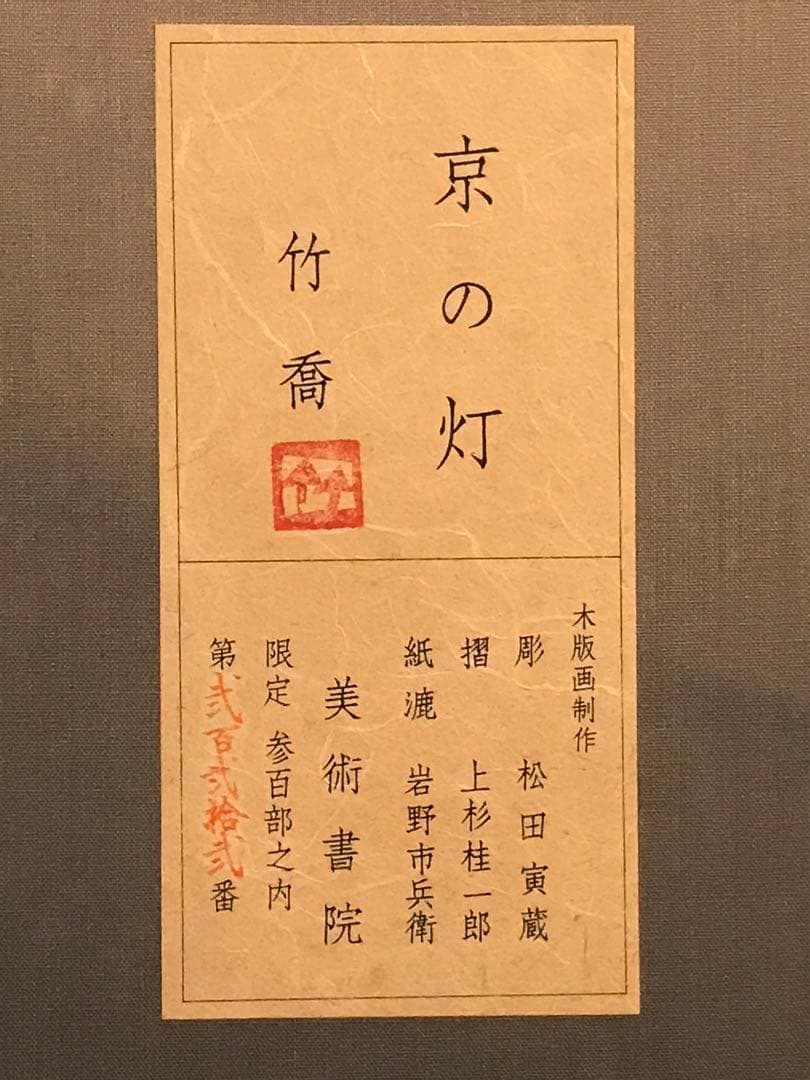 京の灯
竹喬
竹
木版画制作
彫 松田寅蔵
摺 上杉桂一郎
紙漉 岩野市兵衛
美術書院
限定 参百部之内
第弐百弐拾弐番